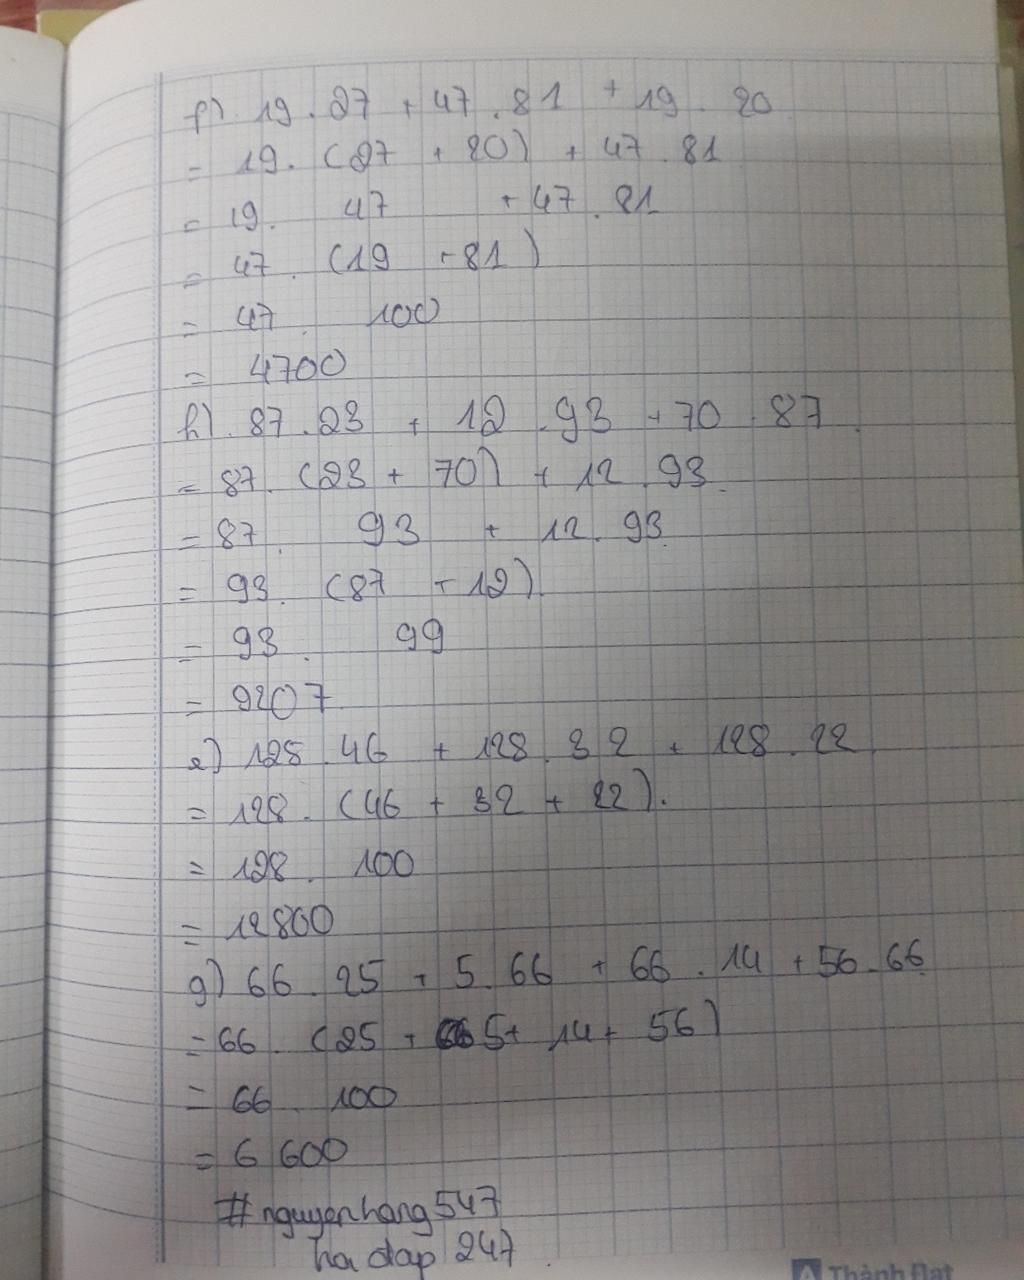 f) 19 . 27 + 47 . 81 + 19 . 20
= 19 . (27 + 20) + 47 . 81
= 19 . 47 + 47 . 81
= 47 . (19 + 81)
= 47 . 100
= 4700
h) . 87 . 23 + 12 . 93 + 70 . 87
= 87 . (23 + 70) + 12 . 93
= 87 . 93 + 12 . 93
= 93 . (87 + 12)
= 93 . 99
= 9207
e) 128 . 46 + 128 . 32 + 128 . 22
= 128 . (46 + 32 + 22) .
= 128 . 100
= 12800
g) 66 . 25 + 5 . 66 + 66 . 14 + 56 . 66
= 66 . (25 + 5 + 14 + 56)
= 66 . 100
= 6 600
#nguyenhang547
hoidap247
Thành Đạt